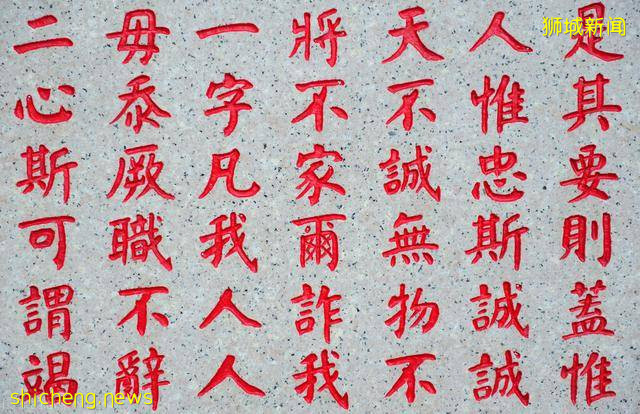 是其要則蓋惟
人惟忠斯誠誠
天不誠無物不
將不家爾詐我
一字凡我人人
毋忝厥職不辭
二心斯可謂竭
狮城新闻
shicheng.news